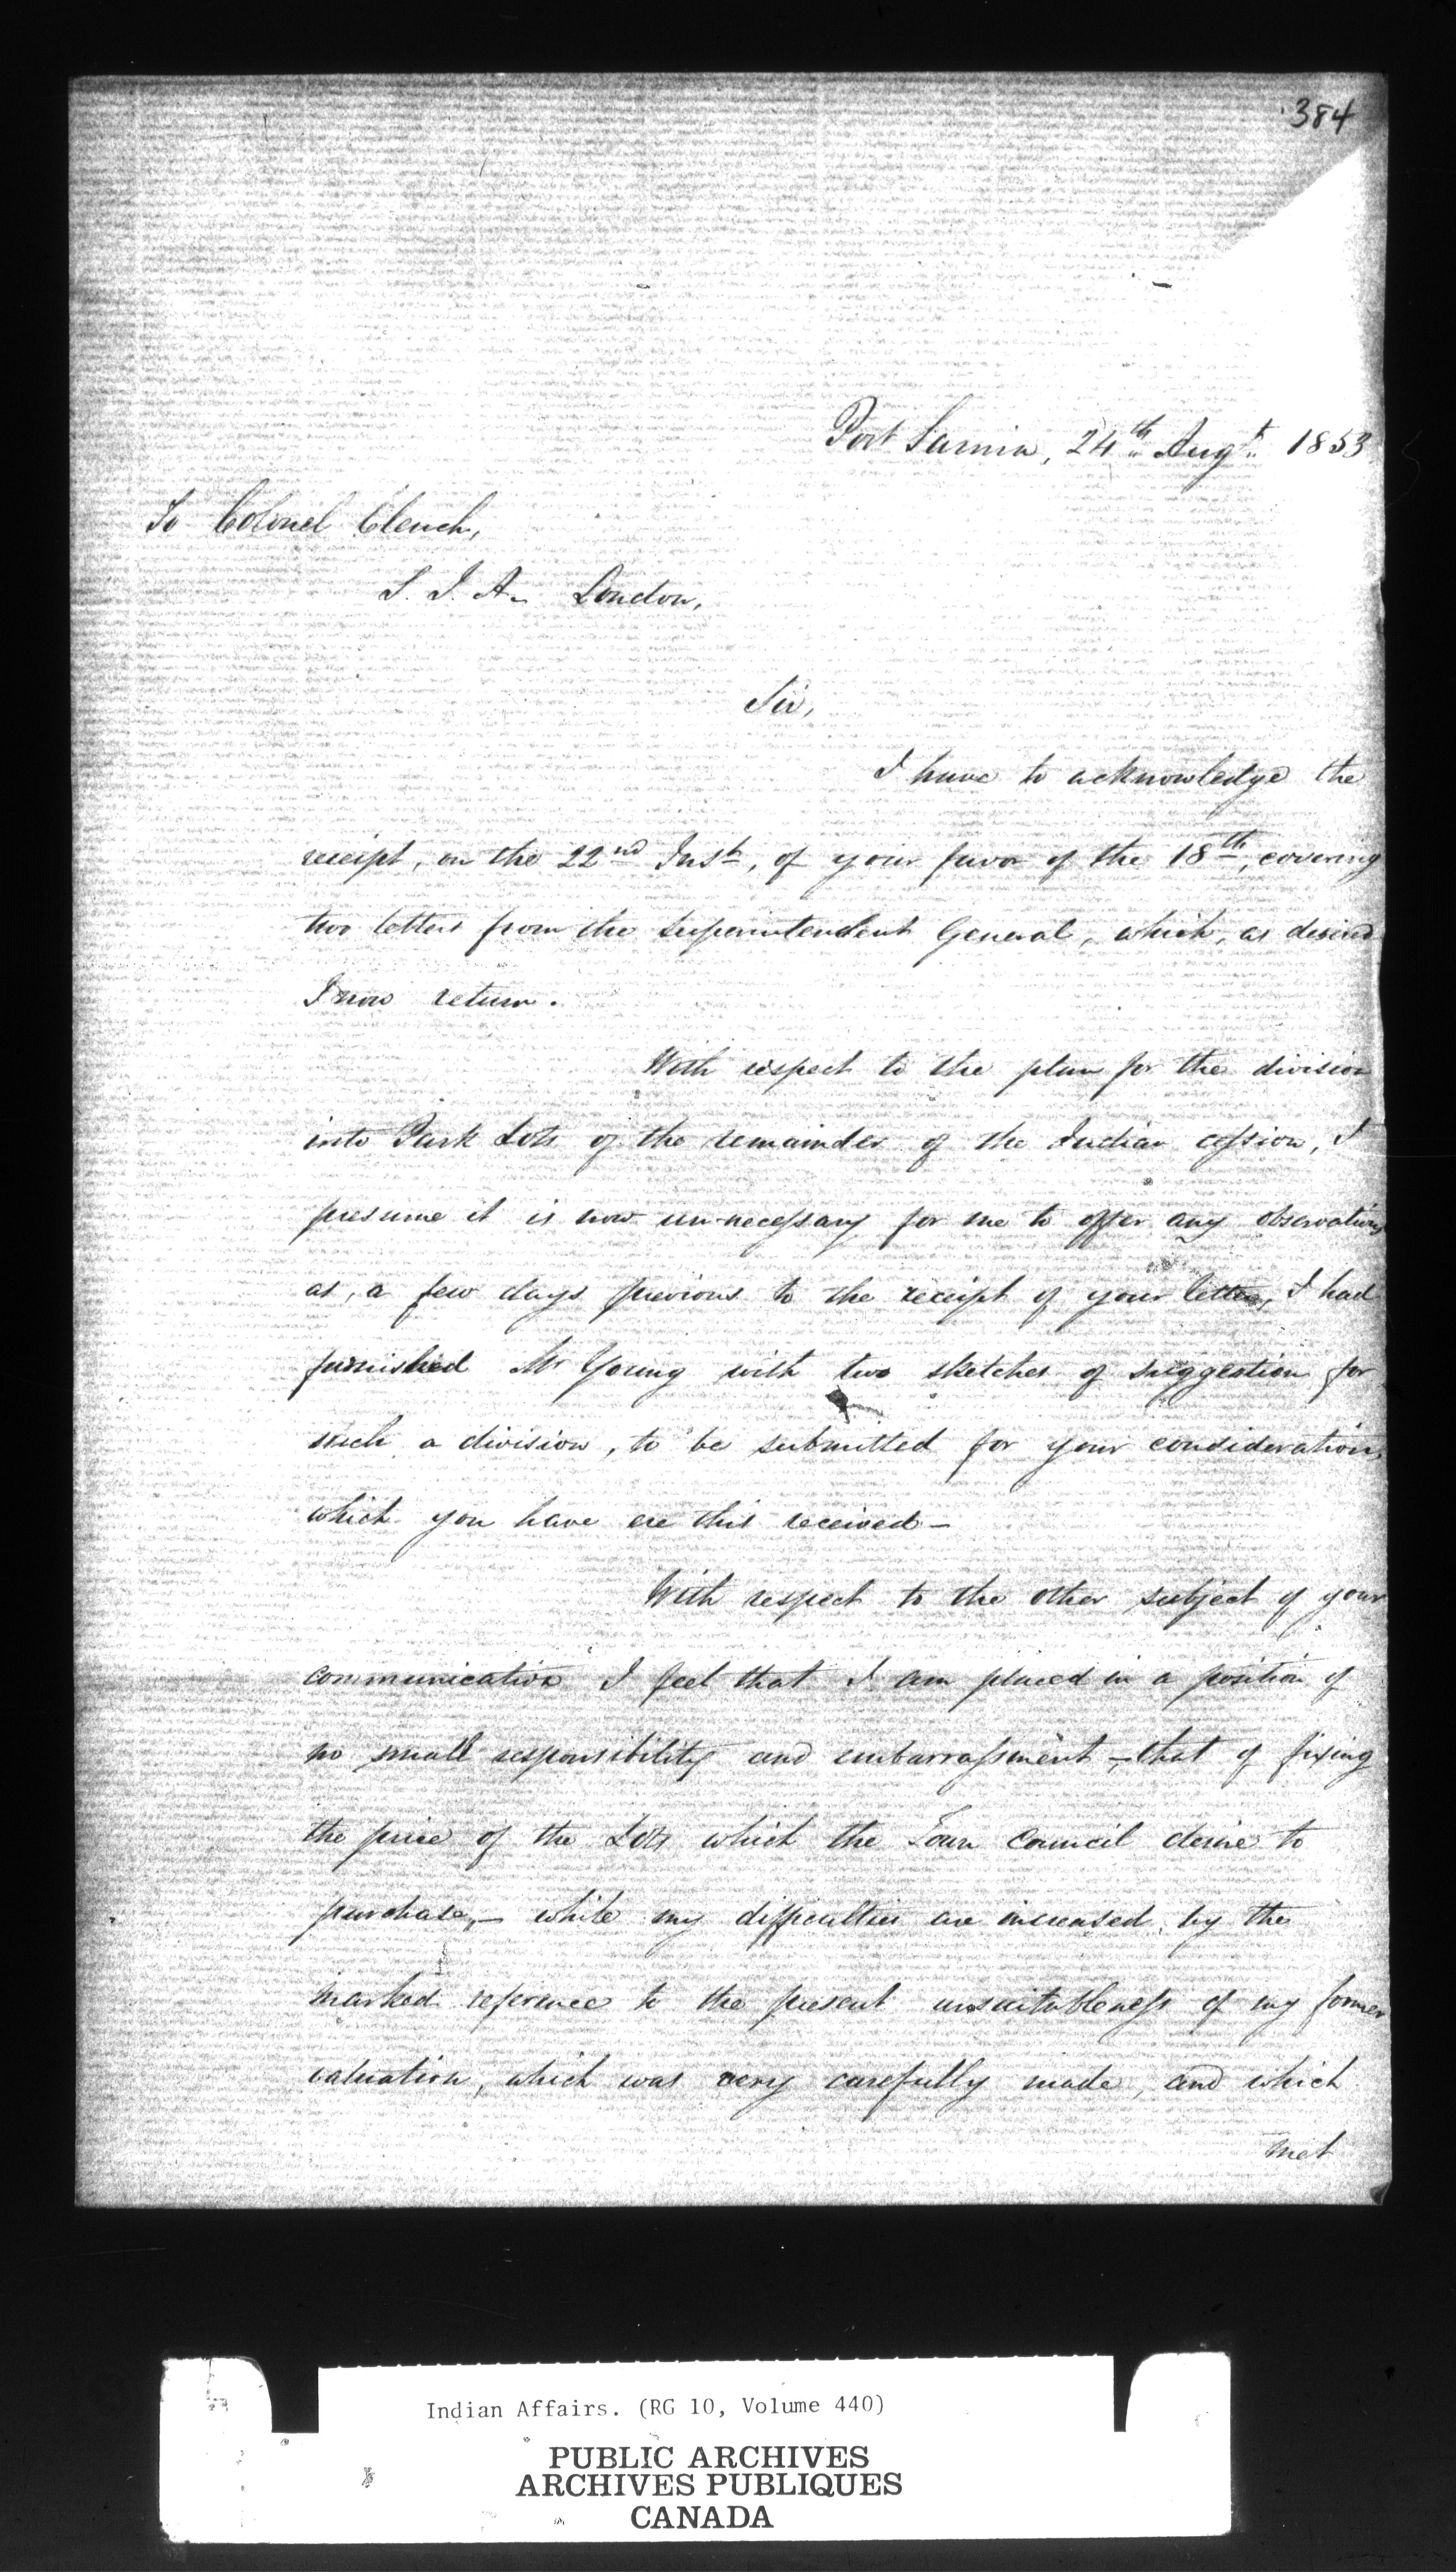 384
Port Sarnia, 24th Augt. 1853
To Colonel Clench,
S. I. A. London,
Sir,
I have to acknowledge the
receipt, on the 22nd Inst, of your favor of the 18th, covering
two letters from the Superintendent General, which, as desired
I now return.
With respect to the plan for the division
into Park Lots of the remainder of the Indian cession, I
presume it is now un-necessary for me to offer any observations
as, a few days previous to the receipt of your letter, I had
furnished Mr Young with two sketches of suggestion for
such a division, to be submitted for your consideration,
which you have ere this received -
With respect to the other subject of your
communication I feel that I am placed in a position of
no small responsibility and embarrassment, - that of fixing
the price of the Lots which the Town Council desire to
purchase, - while my difficulties are increased by the
marked reference to the present unsuitableness of my former
valuation, which was very carefully made, and which
met
Indian Affairs. (RG 10, Volume 440)
PUBLIC ARCHIVES
ARCHIVES PUBLIQUES
CANADA